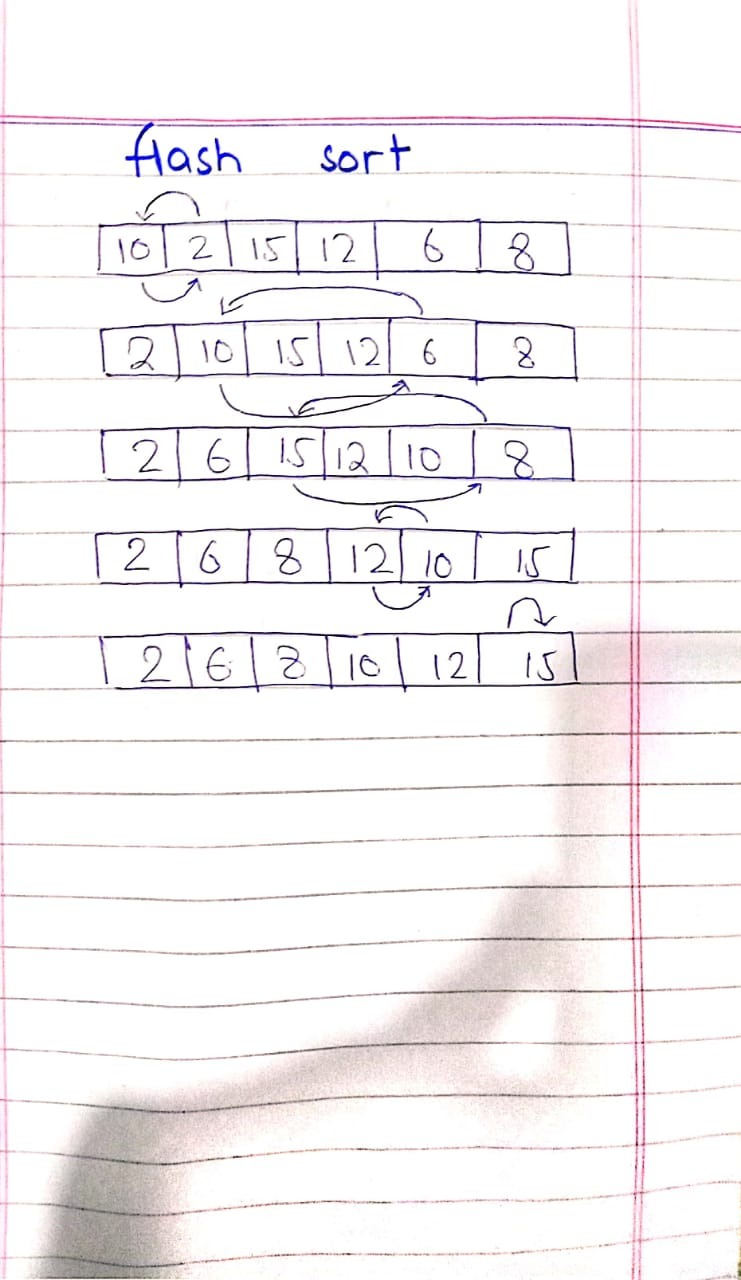 flash sort
10 2 15 12 6 8
2 10 15 12 6 8
2 6 15 12 10 8
2 6 8 12 10 15
2 6 8 10 12 15